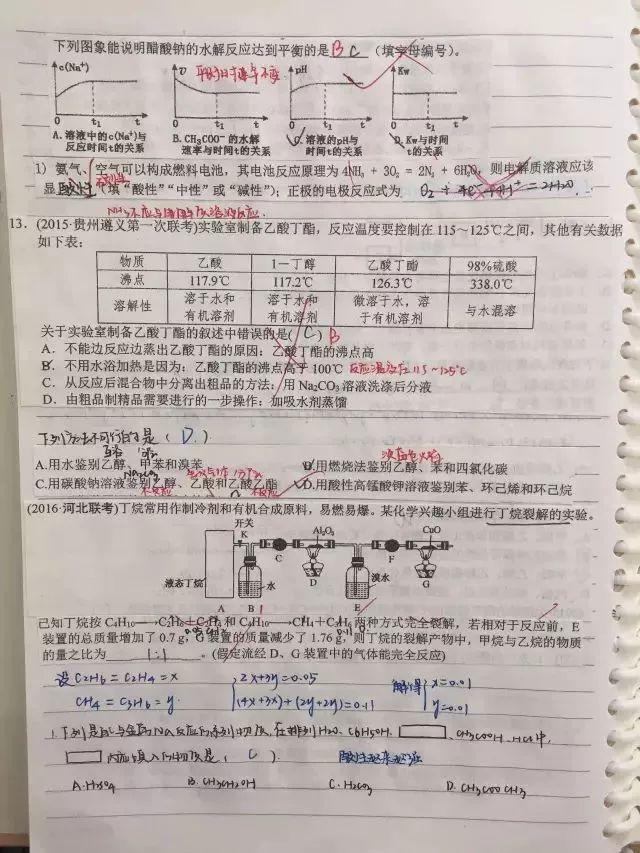 下列图象能说明醋酸钠的水解反应达到平衡的是 B C (填字母编号)。
c(Na⁺) υ pH Kw
平衡时υ不变
t₁ t t₁ t t₁ t t₁ t
A.溶液中的c(Na⁺)与反应时间t的关系
B.CH₃COO⁻的水解速率与时间t的关系
C.溶液的pH与时间t的关系
D.Kw与时间t的关系
1) 氨气、空气可以构成燃料电池，其电池反应原理为 4NH₃ + 3O₂ = 2N₂ + 6H₂O。则电解质溶液应该
显 酸性 (填“酸性”“中性”或“碱性”)；正极的电极反应式为 O₂ + 4e⁻ + 4H⁺ = 2H₂O.
13. (2015·贵州遵义第一次联考)实验室制备乙酸丁酯，反应温度要控制在 115～125℃之间，其他有关数据
如下表：
物质 乙酸 1－丁醇 乙酸丁酯 98%硫酸
沸点 117.9℃ 117.2℃ 126.3℃ 338.0℃
溶解性 溶于水和有机溶剂 溶于水和有机溶剂 微溶于水，溶于有机溶剂 与水混溶
关于实验室制备乙酸丁酯的叙述中错误的是( C ) B
A. 不能边反应边蒸出乙酸丁酯的原因：乙酸丁酯的沸点高
B. 不用水浴加热是因为：乙酸丁酯的沸点高于 100℃ 反应温度在115～125℃
C. 从反应后混合物中分离出粗品的方法：用 Na₂CO₃ 溶液洗涤后分液
D. 由粗品制精品需要进行的一步操作：加吸水剂蒸馏
下列方法不可行的是 ( D. )
A.用水鉴别乙醇、甲苯和溴苯
B.用燃烧法鉴别乙醇、苯和四氯化碳
Na₂CO₃
C.用碳酸钠溶液鉴别乙醇、乙酸和乙酸乙酯
不反应
D.用酸性高锰酸钾溶液鉴别苯、环己烯和环己烷
(2016·河北联考)丁烷常用作制冷剂和有机合成原料，易燃易爆。某化学兴趣小组进行丁烷裂解的实验。
开关 K Al₂O₃ CuO
C D F G
液态丁烷 水 溴水
A B E
已知丁烷按 C₄H₁₀⟶C₂H₆＋C₂H₄ 和 C₄H₁₀⟶CH₄＋C₃H₆ 两种方式完全裂解，若相对于反应前，E
装置的总质量增加了 0.7 g，G 装置的质量减少了 1.76 g，则丁烷的裂解产物中，甲烷与乙烷的物质
的量之比为 1:1 。(假定流经 D、G 装置中的气体能完全反应)
设 C₂H₆ = C₂H₄ = x
CH₄ = C₃H₆ = y.
2x+3y=0.05
(4x+3x)+(2y+2y)=0.11
解得 x=0.01
y=0.01
1.下列是能与金属Na反应的系列物质, 在排列H₂O、C₆H₅OH、▭、CH₃COOH、HCl中,
▭内应填入的物质是 ( C ). 酸性越来越强
A.H₂SO₄ B. CH₃CH₂OH C. H₂CO₃ D. CH₃COOCH₃